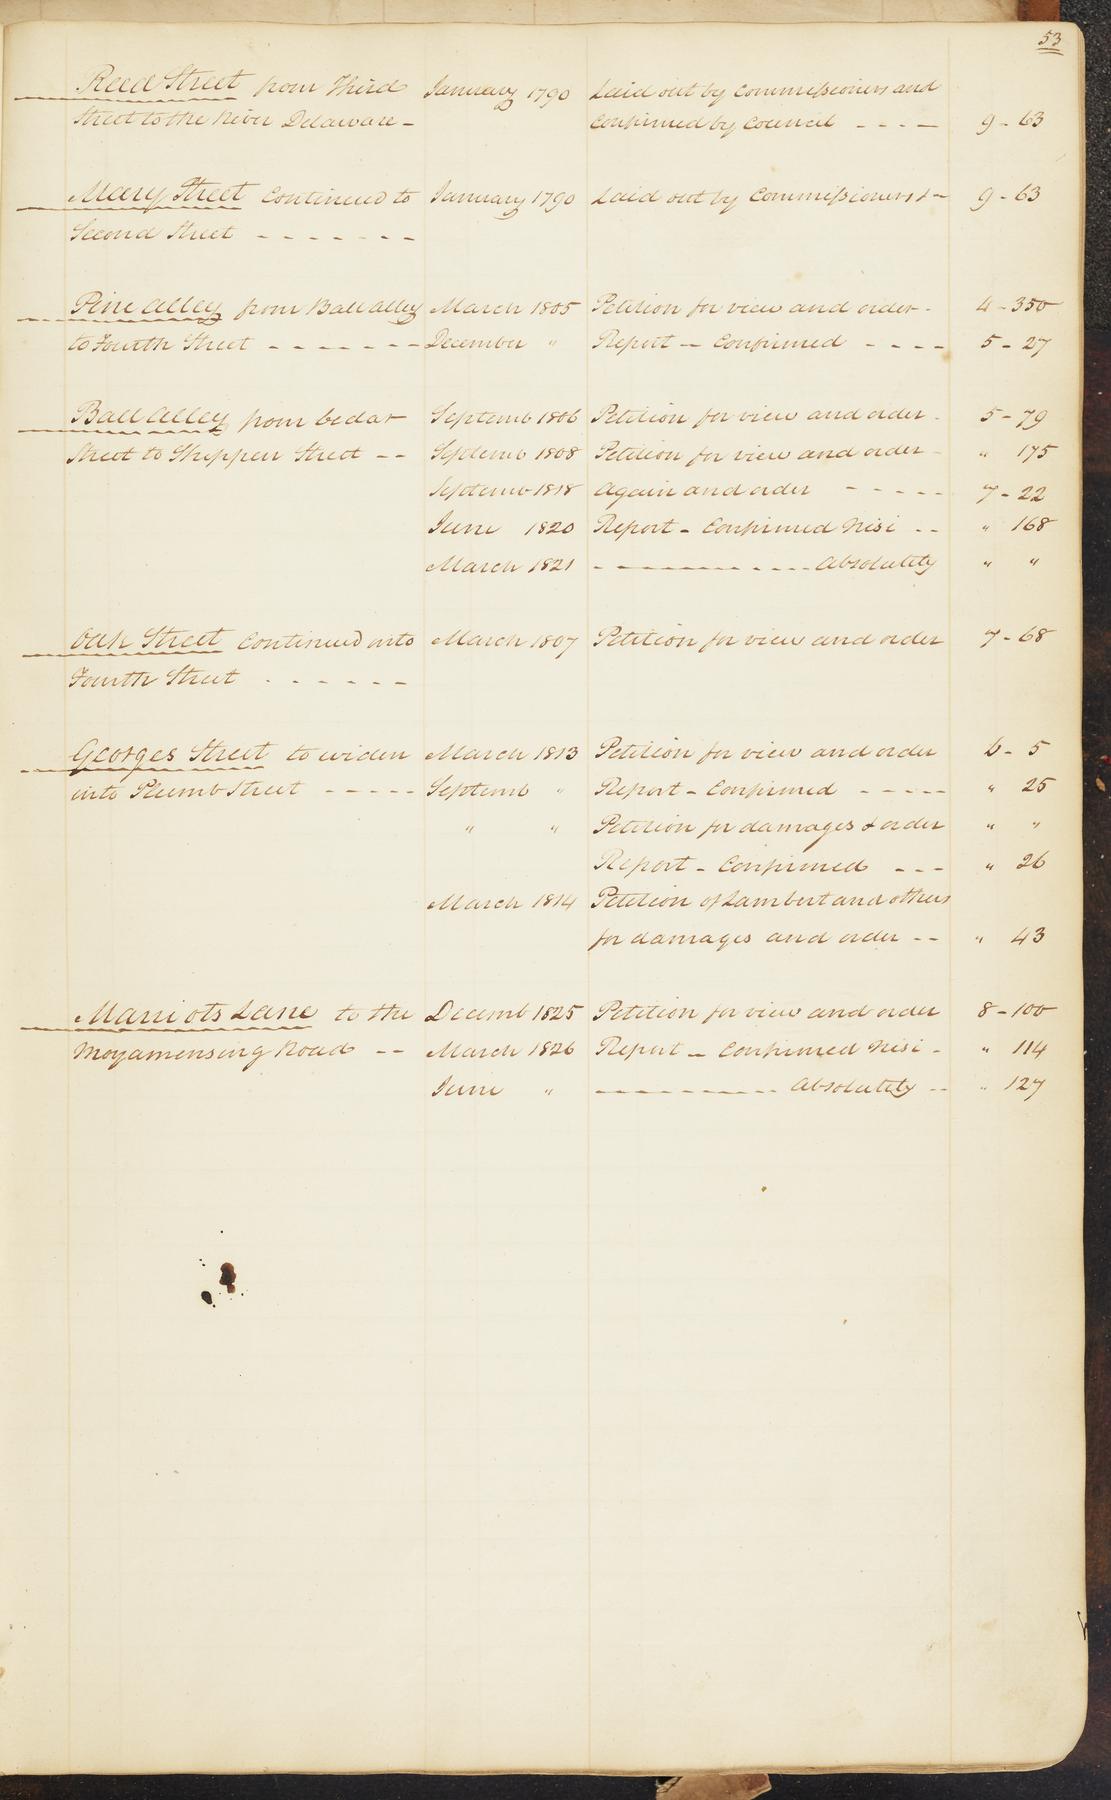 53
Reed Street from Third January 1790 Laid out by Commissioners and
Street to the River Delaware - Confirmed by Council - - - - 9 - 63
Mary Street Continued to January 1790 Laid out by Commissioners &c 9 - 63
Second Street - - - - - - -
Pine alley from Ball alley March 1805 Petition for view and order - 4 - 350
to Fourth Street - - - - - - - December " Report - Confirmed - - - - 5 - 27
Ball alley from Cedar Septemb 1806 Petition for view and order - 5 - 79
Street to Shippen Street - - Septemb 1808 Petition for view and order - " 175
Septemb 1818 Again and order - - - - - 7 - 22
June 1820 Report - Confirmed Nisi - - " 168
March 1821 - - - - - - - - - - Absolutely " "
Oak Street Continued into March 1807 Petition for view and order 7 - 68
Fourth Street - - - - - -
Georges Street to widen March 1813 Petition for view and order 6 - 5
into Plumb Street - - - - - Septemb " Report - Confirmed - - - - - " 25
" " Petition for damages & order " "
Report - Confirmed - - - " 26
March 1814 Petition of Lambert and others
for damages and order - - " 43
Marriots Lane to the Decemb 1825 Petition for view and order 8 - 100
Moyamensing Road - - March 1826 Report - Confirmed Nisi - " 114
June " - - - - - - - - - - Absolutely - - " 127